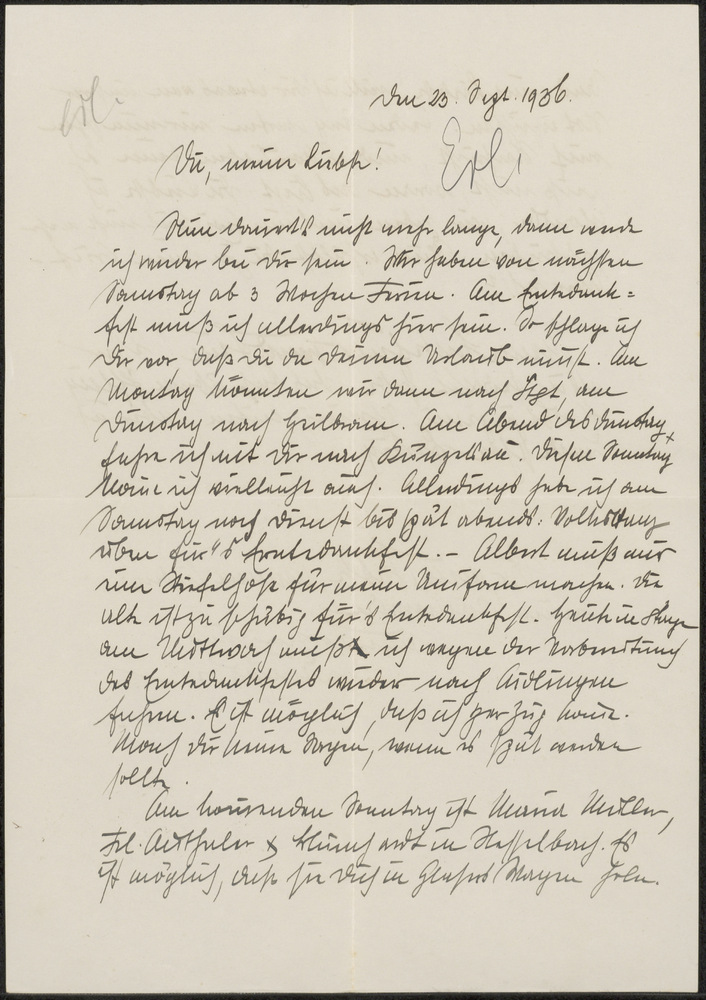 den 23. Sept. 1936.
Erl.
Du, meine Liebste!
Erl.
Nun dauert's nicht mehr lange, dann werde
ich wieder bei Dir sein. Wir haben von nächsten
Samstag ab 3 Wochen Ferien. Am Erntedank=
fest muß ich allerdings hier sein. So schlage ich
Dir vor, daß Du da Deinen Urlaub nimst. Am
Montag könnten wir dann nach Stgt, am
Dienstag nach Heilbronn. Am Abend des Dienstag
fahre ich mit Dir nach Künzelsau. Diesen Sonntag
komme ich vielleicht auch. Allerdings habe ich am
Samstag noch Dienst bis spät abends: Volkstanz
üben für's Erntedankfest. – Albert muß mir
eine Stiefelhose für meine Uniform machen. Die
alte ist zu schäbig für's Erntedankfest. Heute
am Mittwoch muß ich wegen der Vorbereitung
des Erntedankfestes wieder nach Aidlingen
fahren. Es ist möglich, daß ich per Zug komme.
Mach Dir keine Sorgen, wenn es spät werden
sollte.
Am kommenden Sonntag ist Maria Müller,
Frl. in Hesselbach. Es
ist möglich, daß sie Dich in Glasers Wagen holen.